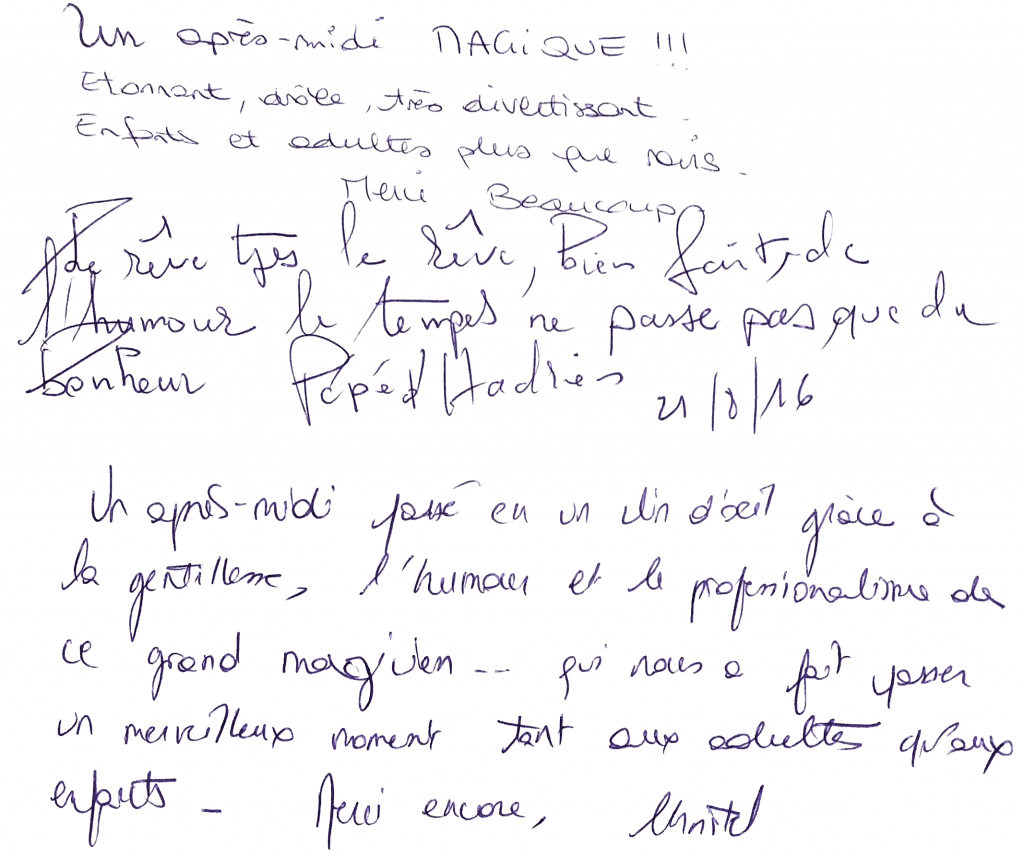 Un après-midi MAGiQUE !!!
Etonnant, drôle, très divertissant.
Enfants et adultes plus que ravis.
Merci Beaucoup
de rêve tjrs le rêve, bien fait, de
l'humour le temps ne passe pas que du
bonheur Pépé Hadrien 21/8/16
Un après-midi passé en un clin d'œil grâce à
la gentillesse, l'humour et le professionalisme de
ce grand magicien -- qui nous a fait passer
un merveilleux moment tant aux adultes qu'aux
enfants - Merci encore,